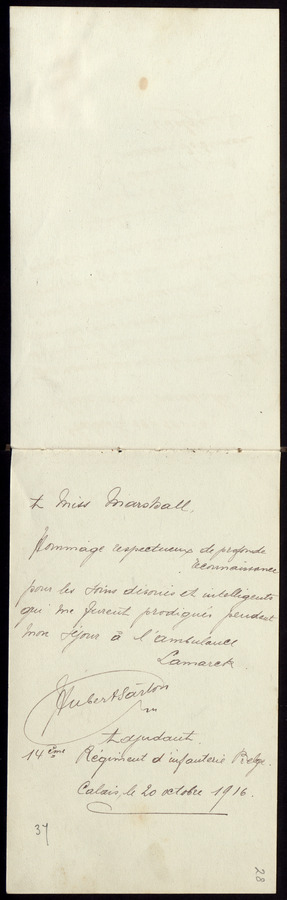 A Miss Marshall.
Hommage respectueux de profonde
reconnaissance
pour les soins dévoués et intelligents
qui me furent prodigués pendant
mon séjour à l'ambulance
Lamarck
Hubert Sarton
Adjudant
14ème Régiment d'infanterie Belge.
Calais, le 20 octobre 1916.
37
28